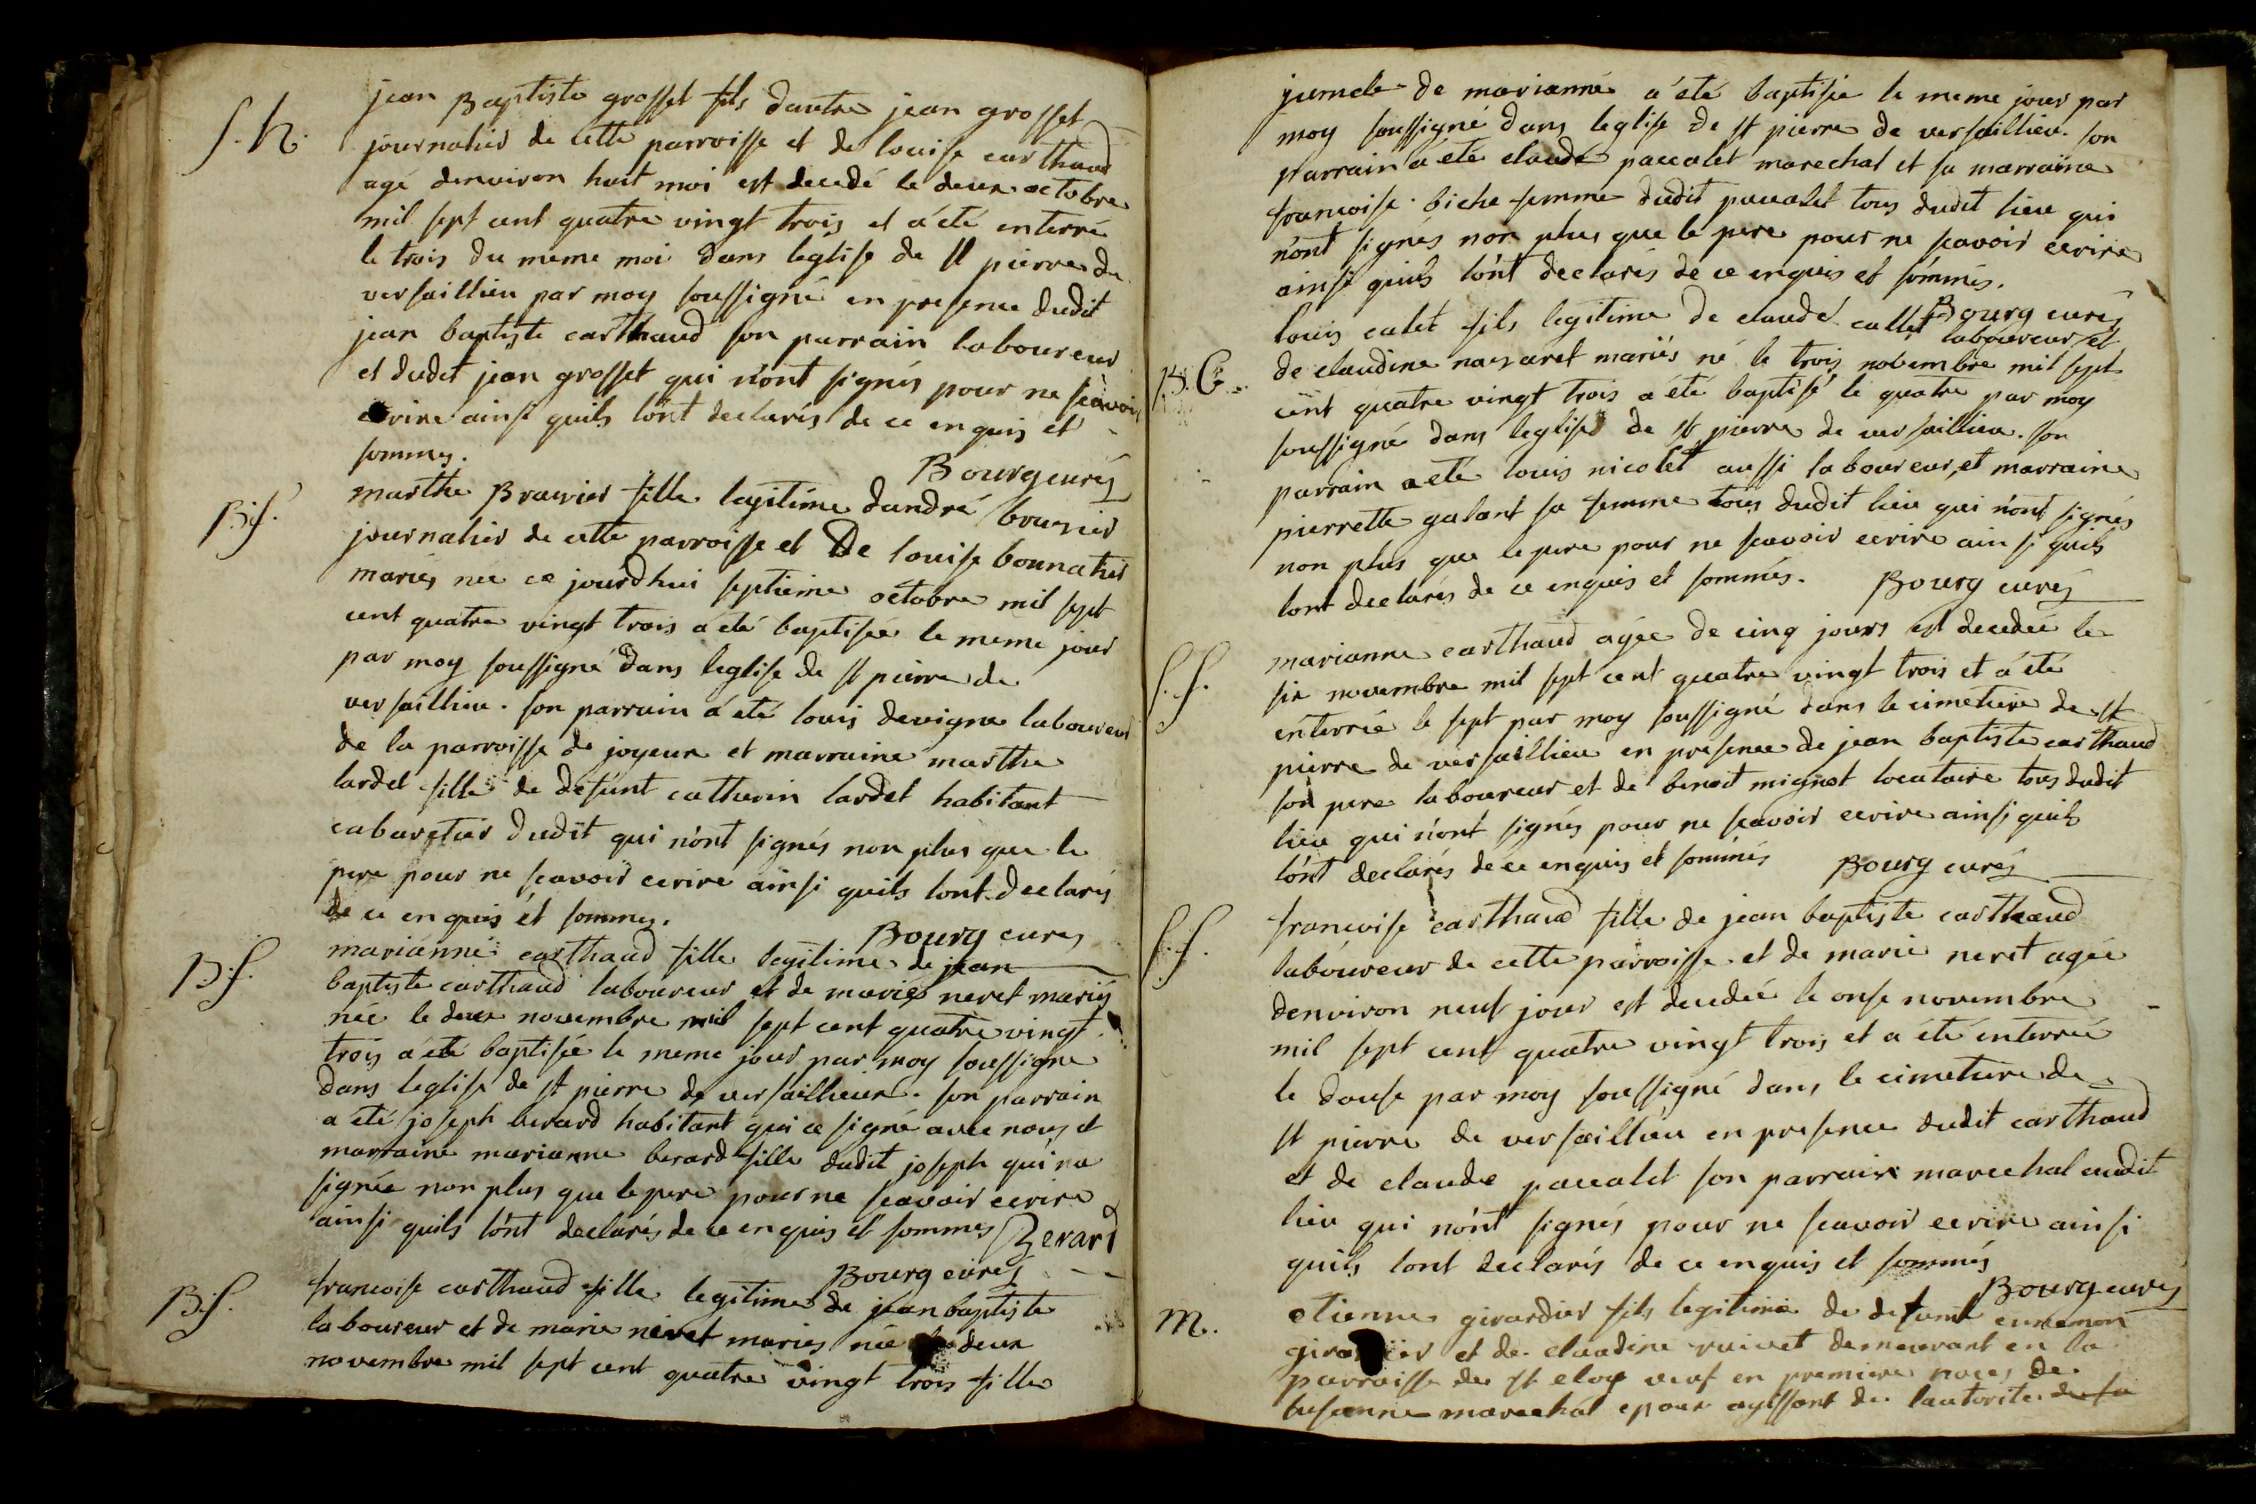 S. h. jean Baptiste grosset fils dautre jean grosset
journalier de cette parroisse et de louise carthaud
agé denviron huit moi est decedé le deux octobre
mil sept cent quatre vingt trois et a été enterré
le trois du meme moi dans leglise de st pierre de
versaillieu par moy soussigné en presence dudit
jean baptiste carthaud son parrain laboureur
et dudit jean grosset qui n'ont signés pour ne scavoir
ecrire ainsi quils l'ont declarés de ce enquis et
sommes. Bourg curés
B. f. marthe Bravier fille legitime dandré
journalier de cette parroisse et De louise bonnatier
mariés née ce jourdhui septieme octobre mil sept
cent quatre vingt trois a été baptisée le meme jour
par moy soussigné dans leglise de st pierre de
versaillieu. son parrain a été louis devigne laboureur
de la parroisse de joyeux et marraine marthe
lardet fille de defunt catherin lardet habitant
cabaretier dudit qui n'ont signés non plus que le
pere pour ne scavoir ecrire ainsi quils lont declarés
de ce enquis et sommes. Bourg curés
B. f. marianne carthaud fille legitime de jean
baptiste carthaud laboureur et de marie neret mariés
née le deux novembre mil sept cent quatre vingt
trois a été baptisée le meme jour par moy soussigne
dans leglise de st pierre de versaillieux. son parrain
a été joseph berard habitant qui a signé avec nous et
marraine marianne berard fille dudit joseph qui na
signée non plus que le pere pour ne scavoir ecrire
ainsi quils l'ont declarés de ce enquis et sommes Berard
Bourg curés
B. f. francoise carthaud fille legitime de jean baptiste
laboureur et de marie neret mariés née le deux
novembre mil sept cent quatre vingt trois fille
jumele de marianne a été baptisée le meme jour par
moy soussigné dans leglise de st pierre de versaillieu. son
parrain a été claude paccalet marechal et sa marraine
francoise biche femme dudit paccalet tous dudit lieu qui
n'ont signés non plus que le pere pour ne scavoir ecrire
ainsi quils l'ont declarés de ce enquis et sommés.
Bourg curés
B. G. louis calet fils legitime de claude callet laboureur et
de claudine nazaret mariés né le trois novembre mil sept
cent quatre vingt trois a été baptisé le quatre par moy
soussigné dans leglise de st pierre de versaillieu. son
parrain a eté louis nicolet aussi laboureur, et marraine
pierrette galant sa femme tous dudit lieu qui n'ont signés
non plus que le pere pour ne scavoir ecrire ainsi quils
lont declarés de ce enquis et sommés. Bourg curés
S. f. marianne carthaud agée de cinq jours est decedée le
six novembre mil sept cent quatre vingt trois et a été
enterrée le sept par moy soussigné dans le cimetiere de st
pierre de versaillieu en presence de jean baptiste carthaud
son pere laboureur et de benoit mignot locataire tous dudit
lieu qui n'ont signés pour ne scavoir ecrire ainsi quils
l'ont declarés de ce enquis et sommés Bourg curés
S. f. francoise carthaud fille de jean baptiste carthaud
laboureur de cette parroisse et de marie neret agée
denviron neuf jour est decedée le onse novembre
mil sept cent quatre vingt trois et a été enterrée
le douse par moy soussigné dans le cimetiere de
st pierre de versaillieu en presence dudit carthaud
et de claude paccalet son parrain marechal audit
lieu qui n'ont signés pour ne scavoir ecrire ainsi
quils lont declarés de ce enquis et sommés
Bourg curés
m. etienne girardier fils legitime de defunt ennemon
et de claudine ruivet demeurant en la
parroisse de st eloy veuf en premiere noces de
susanne marechal epoux agissant de lautorite de sa